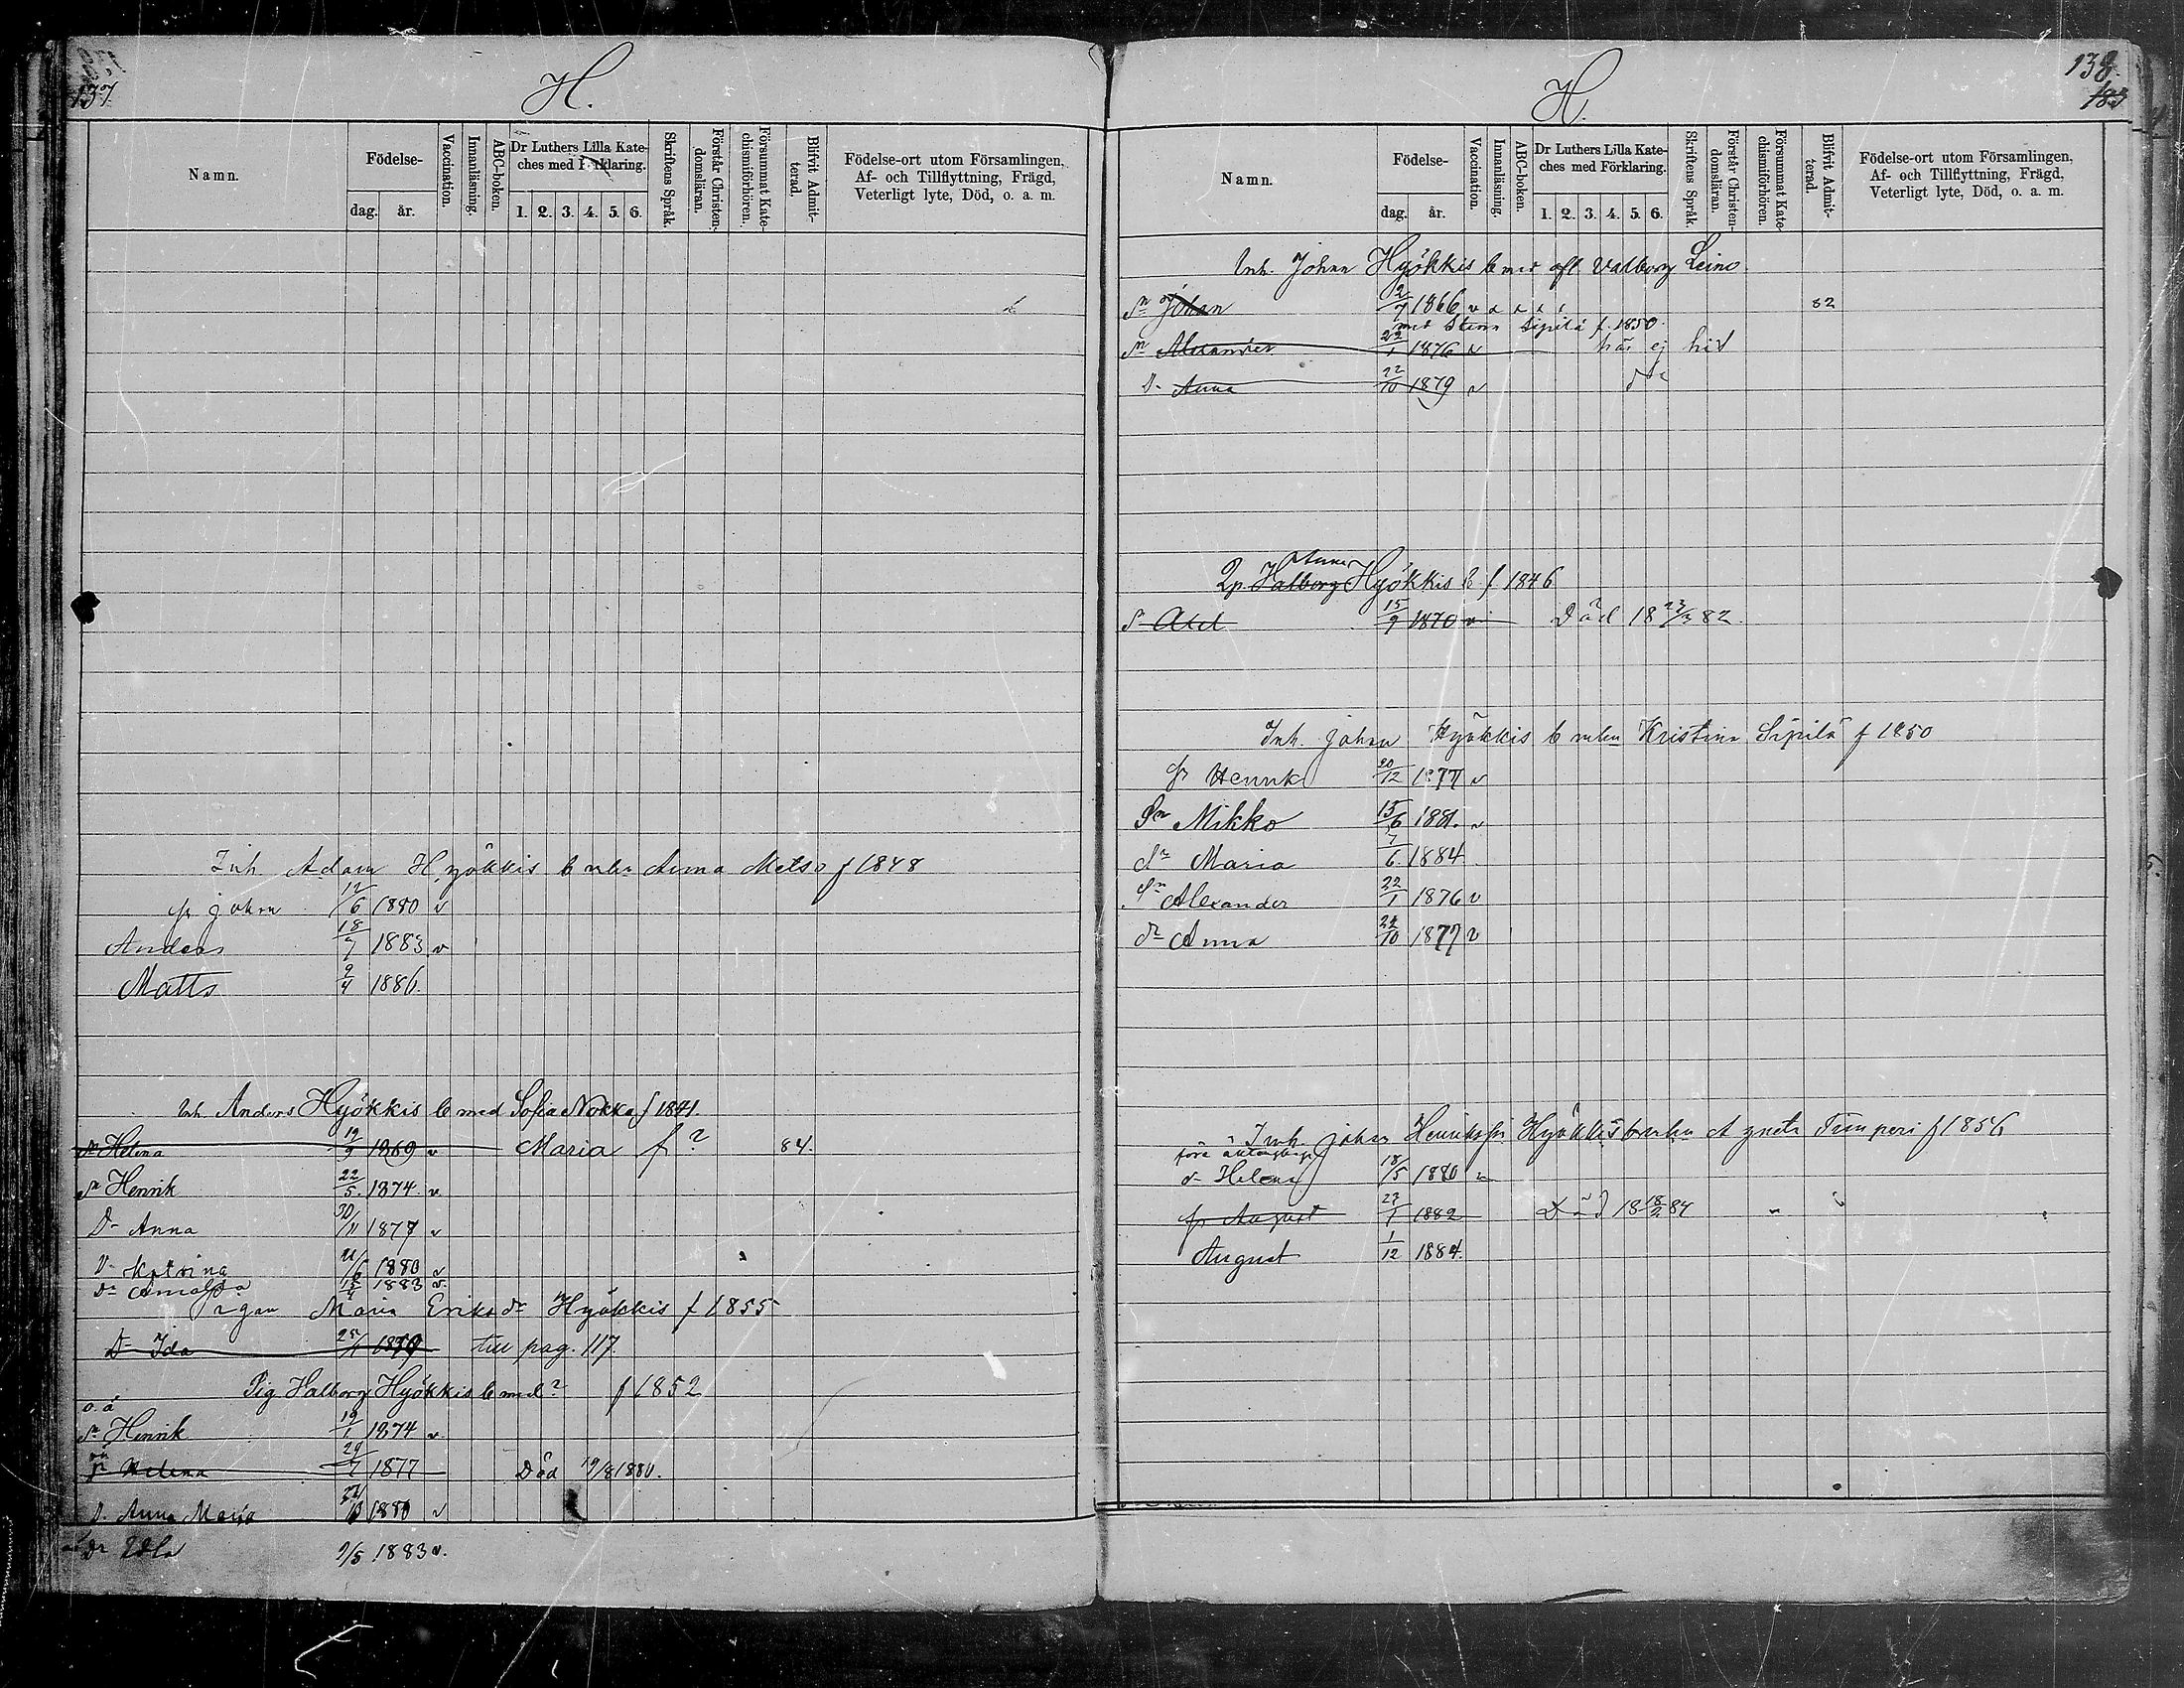 137
H.
Namn.
Födelse-
dag. år.
Vaccination.
Innanläsning.
ABC-boken.
Dr Luthers Lilla Kate-
ches med Förklaring.
1. 2. 3. 4. 5. 6.
Skriftens Språk.
Förstår Christen-
domsläran.
Försummat Kate-
chismiförhören.
Blifvit Admit-
terad.
Födelse-ort utom Församlingen,
Af- och Tillflyttning, Frägd,
Veterligt lyte, Död, o. a. m.
Inh Adam Hyökkis Anna Metso f 1848
Johan 12/6 1880 v
Anders 18/7 1883 v
Matts 9/4 1886.
Inh Anders Hyökkis b med Sofia Nokka f 1841.
Helena 19/9 1869 v Maria f ? 84.
Sn Henrik 22/5 1874 v
Dr Anna 30/11 1877 v
Dr Katrina 1880 v
Dr Amalda 1883 v.
Maria Eriksdr Hyökkis f 1855
Dr Ida 1879 till pag. 117.
Pig Halborg Hyökkis b med ? f 1852
o. ä
Sn Henrik 19/1 1874 v
Helena 29/7 1877 Död 19/8 1880.
D. Anna Maria 1880 v
Dr Edla 9/5 1883 v.
138.
183
H.
Namn.
Födelse-
dag. år.
Vaccination.
Innanläsning.
ABC-boken.
Dr Luthers Lilla Kate-
ches med Förklaring.
1. 2. 3. 4. 5. 6.
Skriftens Språk.
Förstår Christen-
domsläran.
Försummat Kate-
chismiförhören.
Blifvit Admit-
terad.
Födelse-ort utom Församlingen,
Af- och Tillflyttning, Frägd,
Veterligt lyte, Död, o. a. m.
Inh. Johan Hyökkis b med afl Valborg Leino
Sn Johan 2/7 1866 v 82
med Stina Sipilä f. 1850.
Sn Alexander 22/1 1876 v hör ej hit
D. Anna 22/10 1879 v do
Anna
Halborg Hyökkis b f 1846
S Axel 15/9 1870 v Död 18 23/3 82.
Inh. Johan Hyökkis b Kristina Sipilä f 1850
Henrik 20/12 1877 v
Sn Mikko 15/6 1881. v
Dr Maria 7/6 1884
Sn Alexander 22/1 1876 v
dr Anna 22/10 1877 v
Inh. Johan Henrikss Hyökkis Agneta Timperi f 1856
d. Helena 18/5 1880 v
August 27/1 1882 Död 18 18/2 84
August 1/12 1884.